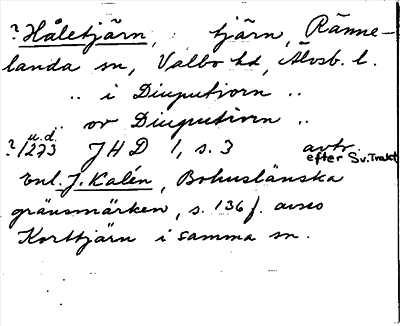 ? Håletjärn, tjärn, Ränne-
landa sn, Valbo hd, Älvsb. l.
.. i Diuputiorn ..
.. or Diuputiorn ..
u. d.
? 1273 JHD 1, s. 3 avtr.
efter Sv. Trakt
Enl. J. Kalén, Bohuslänska
gränsmärken, s. 136 f. avses
Korttjärn i samma sn.